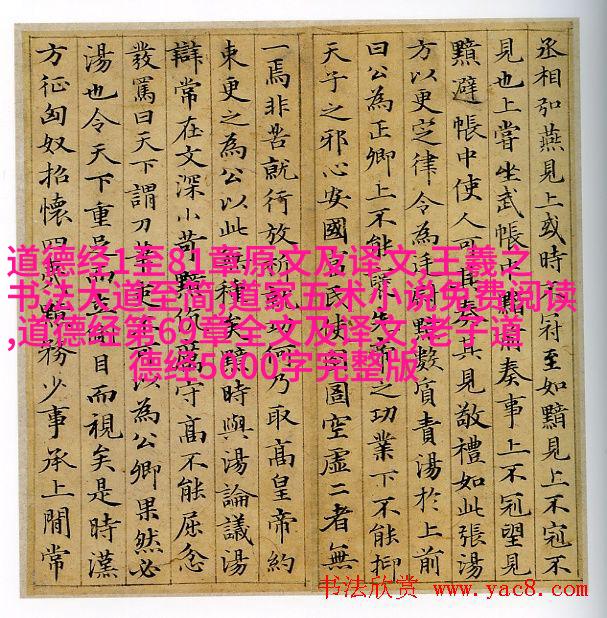 丞相弘燕見上或時不冠至如黯見上不冠不
見也上嘗坐武帳中黯前奏事上不冠望見
黯避帳中使人可其奏其見敬禮如此張湯
方以更定律令為廷尉黯數質責湯於上前
曰公為正卿上不能襃先帝之功業下不能抑
天子之邪心安國富民使囹圄空虛二者無
一焉非苦就行放析就功何乃取高皇帝約
束更之為公以此無種矣黯時與湯論議湯
辯常在文深小苛黯伉厲守高不能屈忿
發罵曰天下謂刀筆吏以為公卿果然必
湯也令天下重足而立側目而視矣是時漢
方征匈奴招懷四夷黯務少事承上間常
道德经1至81章原文及译文,王羲之
书法大道至简,道家五术小说免费阅读
,道德经第69章全文及译文,老子道
德经5000字完整版
书法欣赏 www.yac8.com